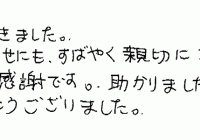 きました。
せにも、すばやく親切に
感謝です。助かりました
うございました。